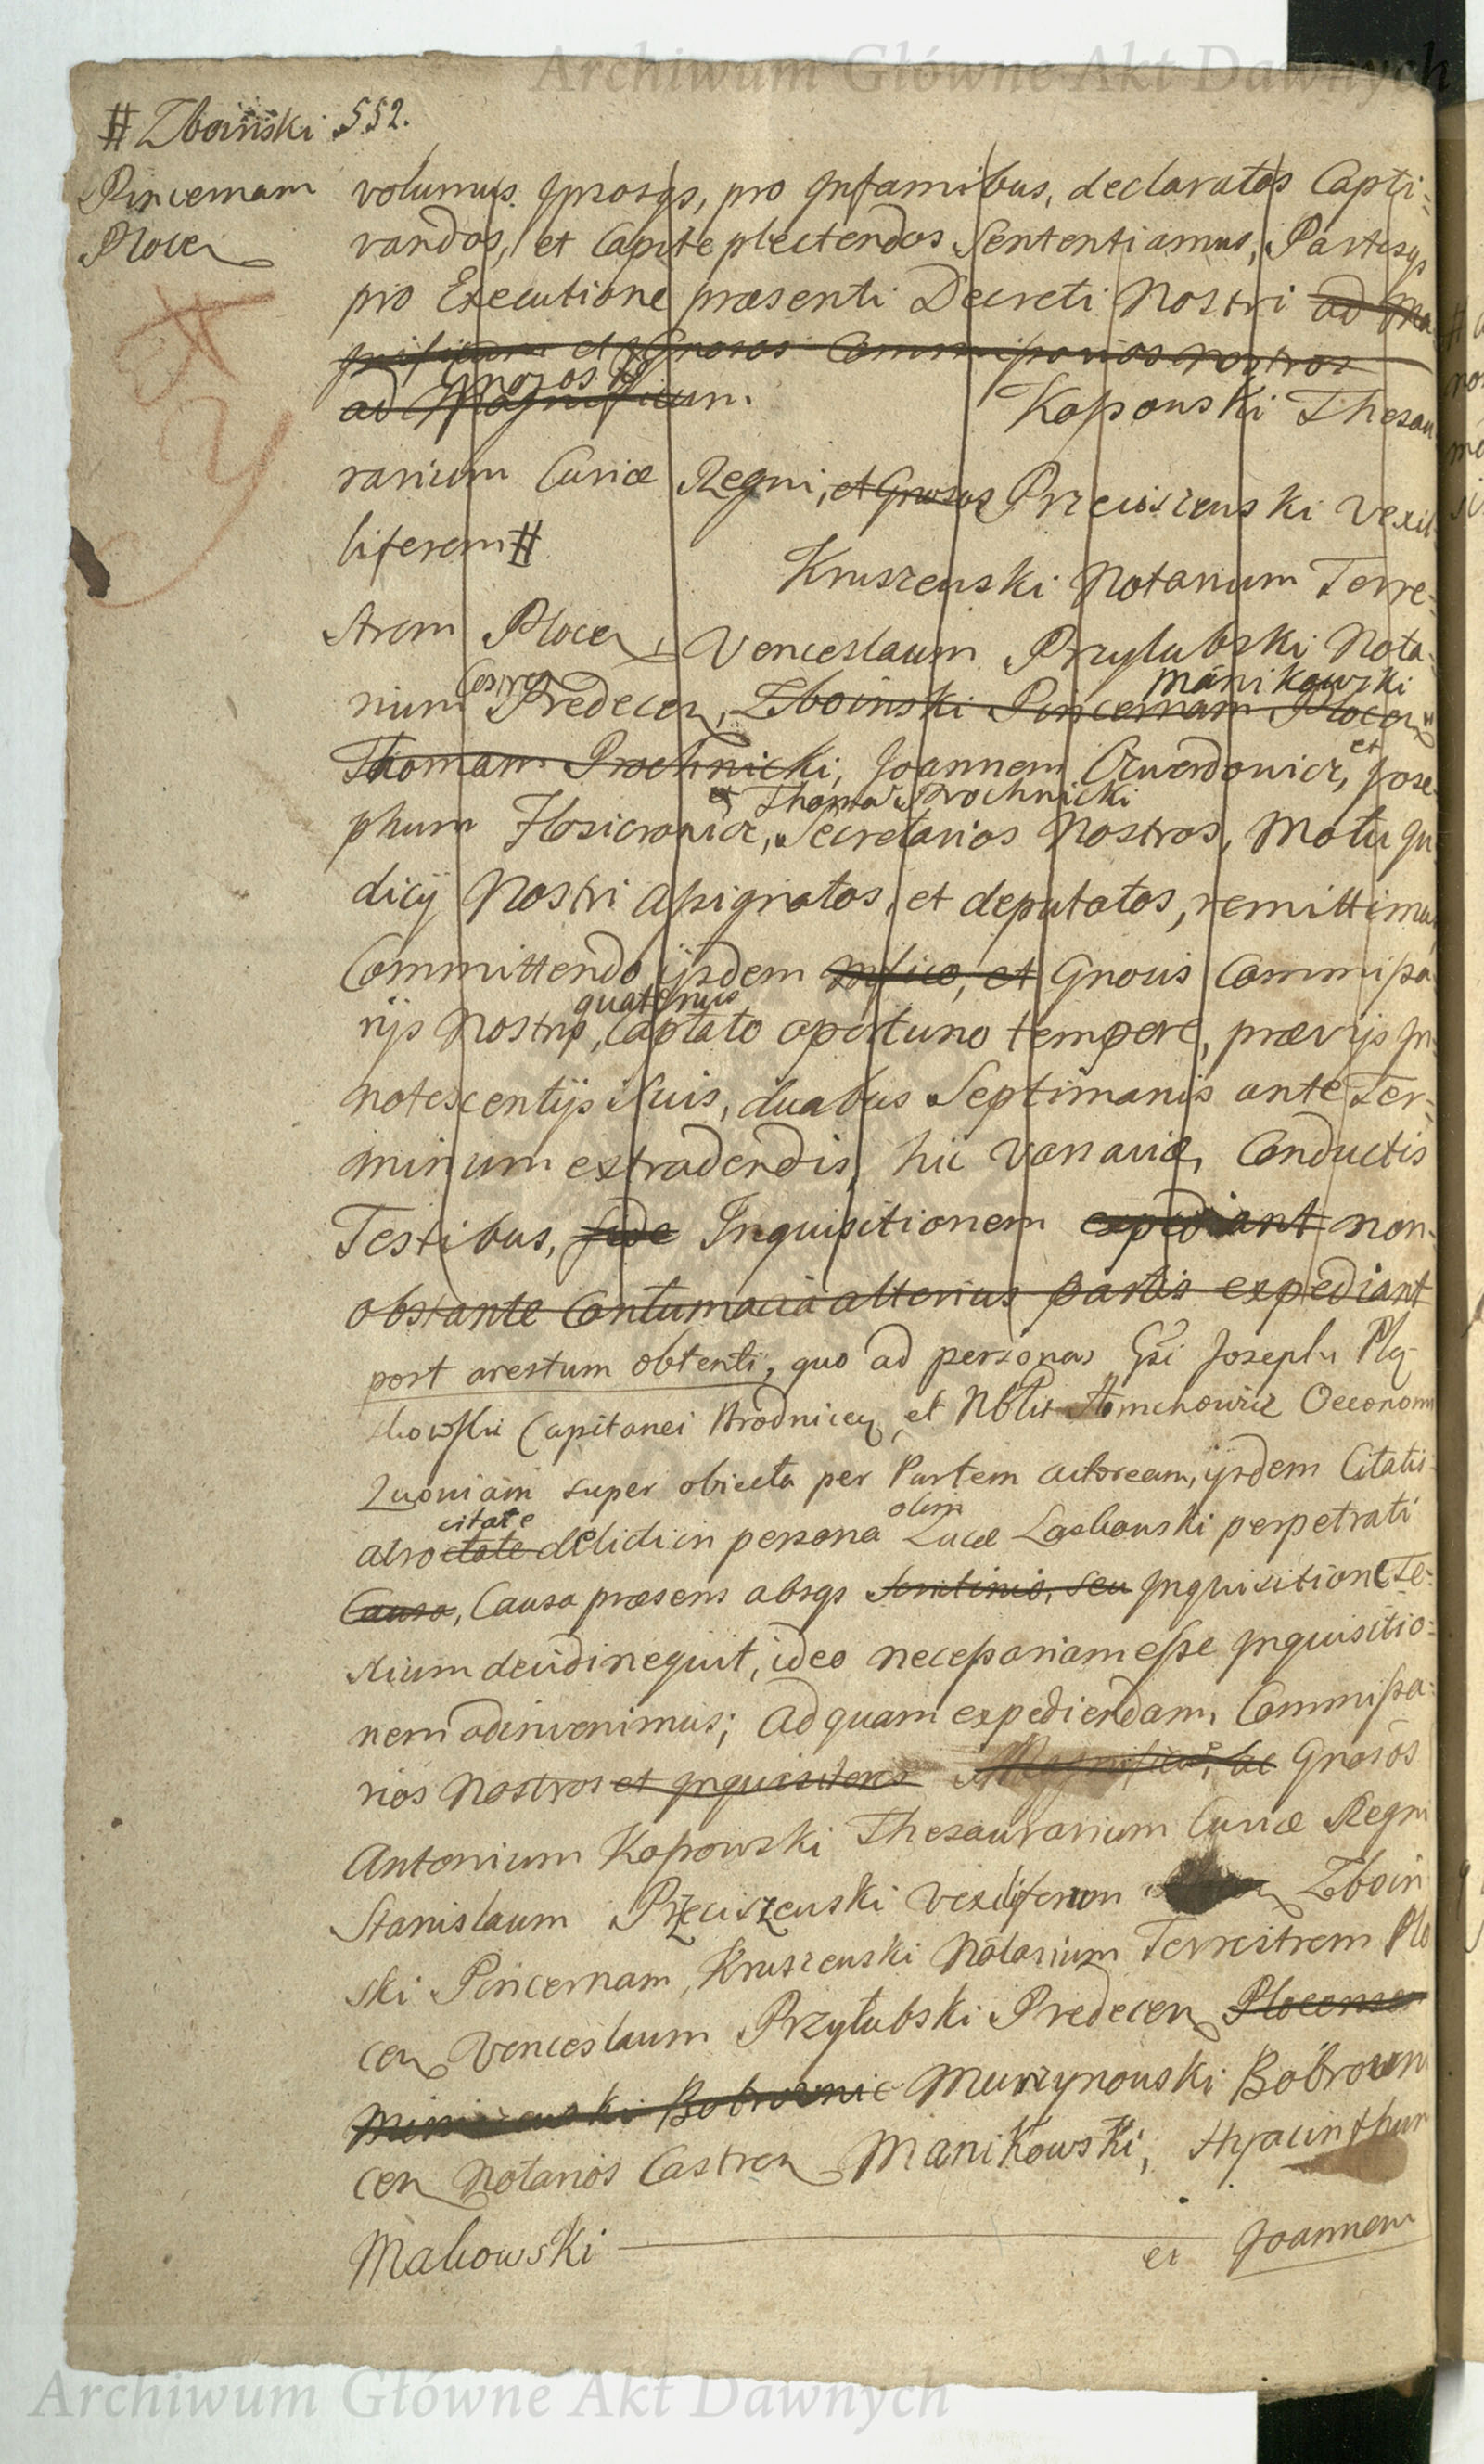 Archiwum Główne Akt Dawnych
# Zboinski 552.
Pincernam
Plocen
volumus. Ipsosqs, pro Infamibus, declaratos Capti=
vandos, et Capite plectendos Sententiamus, Partesqs
pro Executione præsenti Decreti Nostri ad Ma
gnificum et Gnosos Commissarios Nostros
Gnosos
ad Magnificum. Kossowski Thesau
rarium Curiæ Regni, et Gnosos Przeciszewski Vexil
liferem #
Kruszewski Notarium Terre=
strem Plocen, Venceslaum Przyłubski Nota=
Castren Manikowski
rium Predecen, Zboinski Pincernam Plocen
Thomam Prochnicki, Joannem Awerdowicz, et Jose
et Thoma Prochnicki
phum Flosicrowicz, Secretarios Nostros, Motu Ju
dicij Nostri assignatos, et deputatos, remittimus
Committendo ijsdem Mfico, et Gnosis Commissa
quatenus
rijs Nostris, Captato oportuno tempore, prævijs In=
notescentijs suis, duabus Septimanis ante Ter=
minum extradendis, hic Varsaviæ, Conductis
Testibus, fide Inquisitionem expediant non=
obstante Contumacia alterius partis expediant
post arestum obtenti, quo ad personas Gsi Josephi Pląs
kowski Capitanei Brodnicen, et Nblis Tomchowicz Oeconom
Quoniam super obiecta per Partem actoream, ijsdem Citatis
citate olim
atroctate delicti in persona Lucæ Laskowski perpetrati
Causa, Causa præsens absqs Scrutinio, seu Inquisitione Te=
stium decidi nequit, ideo necessariam esse Inquisitio=
nem adinvenimus; Ad quam expediendam Commissa=
rios Nostros et Inquisitores Magnificum, ac Gnosos
Antonium Kossowski Thesaurarium Curiæ Regni
Stanislaum Przeciszewski Vexiliferum Zboin
ski Pincernam, Kruszewski Notarium Terrestrem Plo
cen Venceslaum Przyłubski Predecen Plocensem
Bobrownic Murzynowski Bobrowni
cen Notarios Castren Manikowski, Hyacinthum
Makowski et Joannem
Archiwum Główne Akt Dawnych